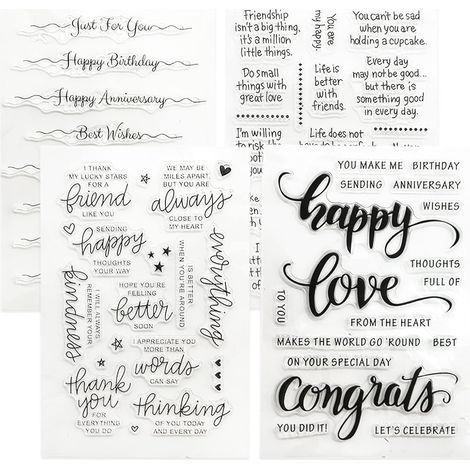 Just For You
Happy Birthday
Happy Anniversary
Best Wishes
Friendship
isn't a big thing,
it's a million
little things.
You are
my happy.
You can't be sad
when you are
holding a cupcake.
Do small
things with
great love
Life is
better
with
friends.
Every day
may not be good...
but there is
something good
in every day.
I'm willing
to risk
Life does not
I THANK
MY LUCKY STARS
FOR A
friend
LIKE YOU
WE MAY BE
MILES APART,
BUT YOU ARE
always
CLOSE TO
MY HEART
SENDING
happy
THOUGHTS
YOUR WAY
everything
IS BETTER
WHEN YOU'RE AROUND
I WILL ALWAYS
REMEMBER YOUR
kindness
HOPE YOU'RE
FEELING
better
SOON
I APPRECIATE YOU
MORE THAN
words
CAN SAY
thank
you
FOR
EVERYTHING
YOU DO
thinking
OF YOU TODAY
AND EVERY DAY
YOU MAKE ME BIRTHDAY
SENDING ANNIVERSARY
WISHES
happy
THOUGHTS
FULL OF
love
TO YOU
FROM THE HEART
MAKES THE WORLD GO 'ROUND BEST
ON YOUR SPECIAL DAY
congrats
YOU DID IT! LET'S CELEBRATE